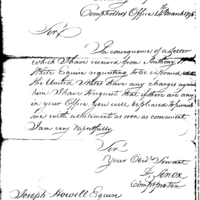 Comptrollers Office 14 March 1795
Sir
In consequence of a Letter
which I have received from Anthony W
White Esquire requesting to be informed
The United States have any charges against
him I have to request that if there are any
in your Office you will be pleased to furnish
me with a statement as soon as convenient
I am very respectfully
Sir
Your Obed Servant
J. Jenox
Comptroller
Joseph Howell Esquire